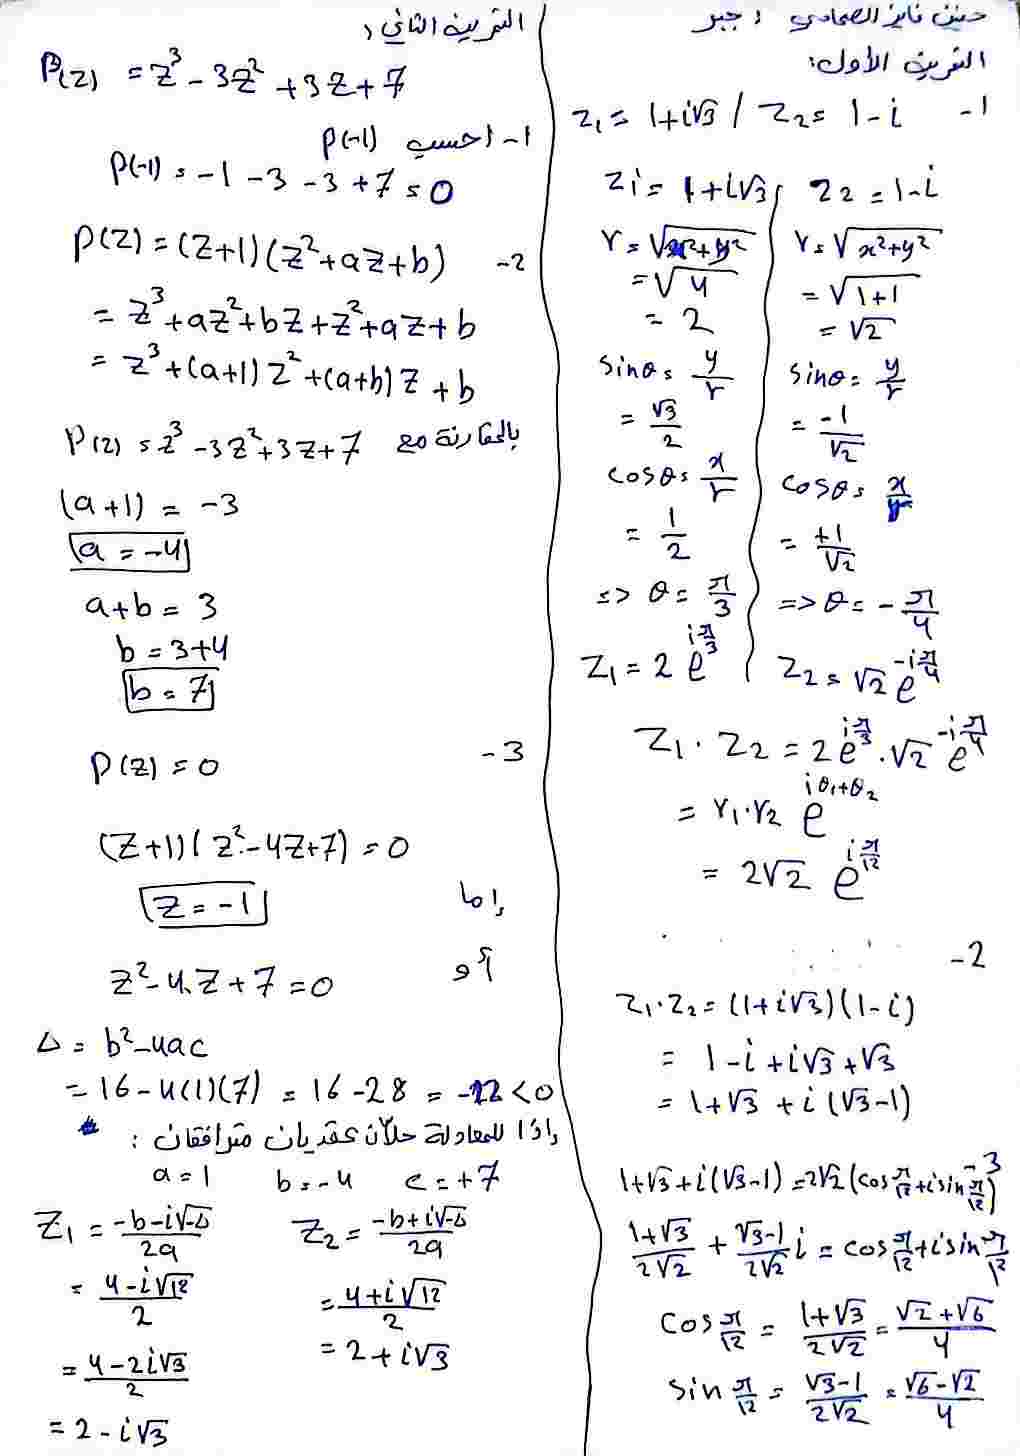 حنين فايز الصمادي : جبر
التمرين الأول:
1- z₁ = 1+i√3 / z₂ = 1-i
z₁ = 1+i√3, z₂ = 1-i
r = √x²+y² r = √x²+y²
= √4 = √1+1
= 2 = √2
sinθ = y/r sinθ = y/r
= √3/2 = -1/√2
cosθ = x/r cosθ = x/r
= 1/2 = +1/√2
=> θ = π/3 => θ = -π/4
z₁ = 2e^{iπ/3} z₂ = √2 e^{-iπ/4}
z₁ · z₂ = 2e^{iπ/3} · √2 e^{-iπ/4}
= r₁·r₂ e^{iθ₁+θ₂}
= 2√2 e^{iπ/12}
2-
z₁·z₂ = (1+i√3)(1-i)
= 1-i+i√3+√3
= 1+√3 + i(√3-1)
3-
1+√3+i(√3-1) = 2√2(cos π/12 + i sin π/12)
1+√3/2√2 + √3-1/2√2 i = cos π/12 + i sin π/12
cos π/12 = 1+√3/2√2 = √2+√6/4
sin π/12 = √3-1/2√2 = √6-√2/4
التمرين الثاني:
P(z) = z³ - 3z² + 3z + 7
1- احسب P(-1)
P(-1) = -1 - 3 - 3 + 7 = 0
2- P(z) = (z+1)(z²+az+b)
= z³+az²+bz+z²+az+b
= z³+(a+1)z²+(a+b)z+b
بالمقارنة مع P(z) = z³-3z²+3z+7
(a+1) = -3
a = -4
a+b = 3
b = 3+4
b = 7
3- P(z) = 0
(z+1)(z²-4z+7) = 0
إما z = -1
أو z²-4z+7 = 0
Δ = b²-4ac
= 16-4(1)(7) = 16-28 = -12 < 0
إذا للمعادلة حلان عقديان مترافقان :
a = 1 b = -4 c = +7
z₁ = -b-i√-Δ/2a z₂ = -b+i√-Δ/2a
= 4-i√12/2 = 4+i√12/2
= 4-2i√3/2 = 2+i√3
= 2-i√3